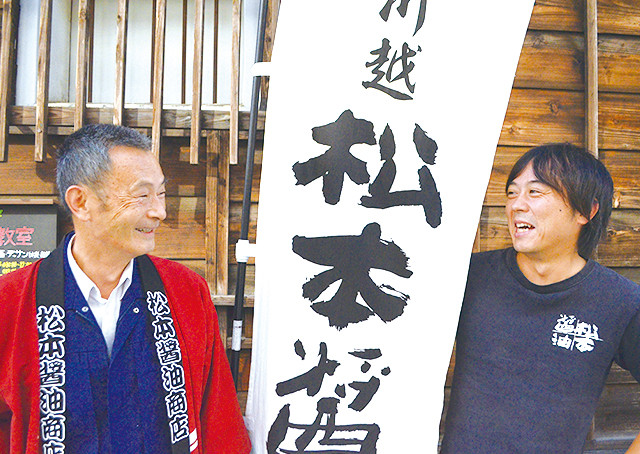 教室
川越
松本醤
松本醤油商店
松本醤油商店
松本
醤油